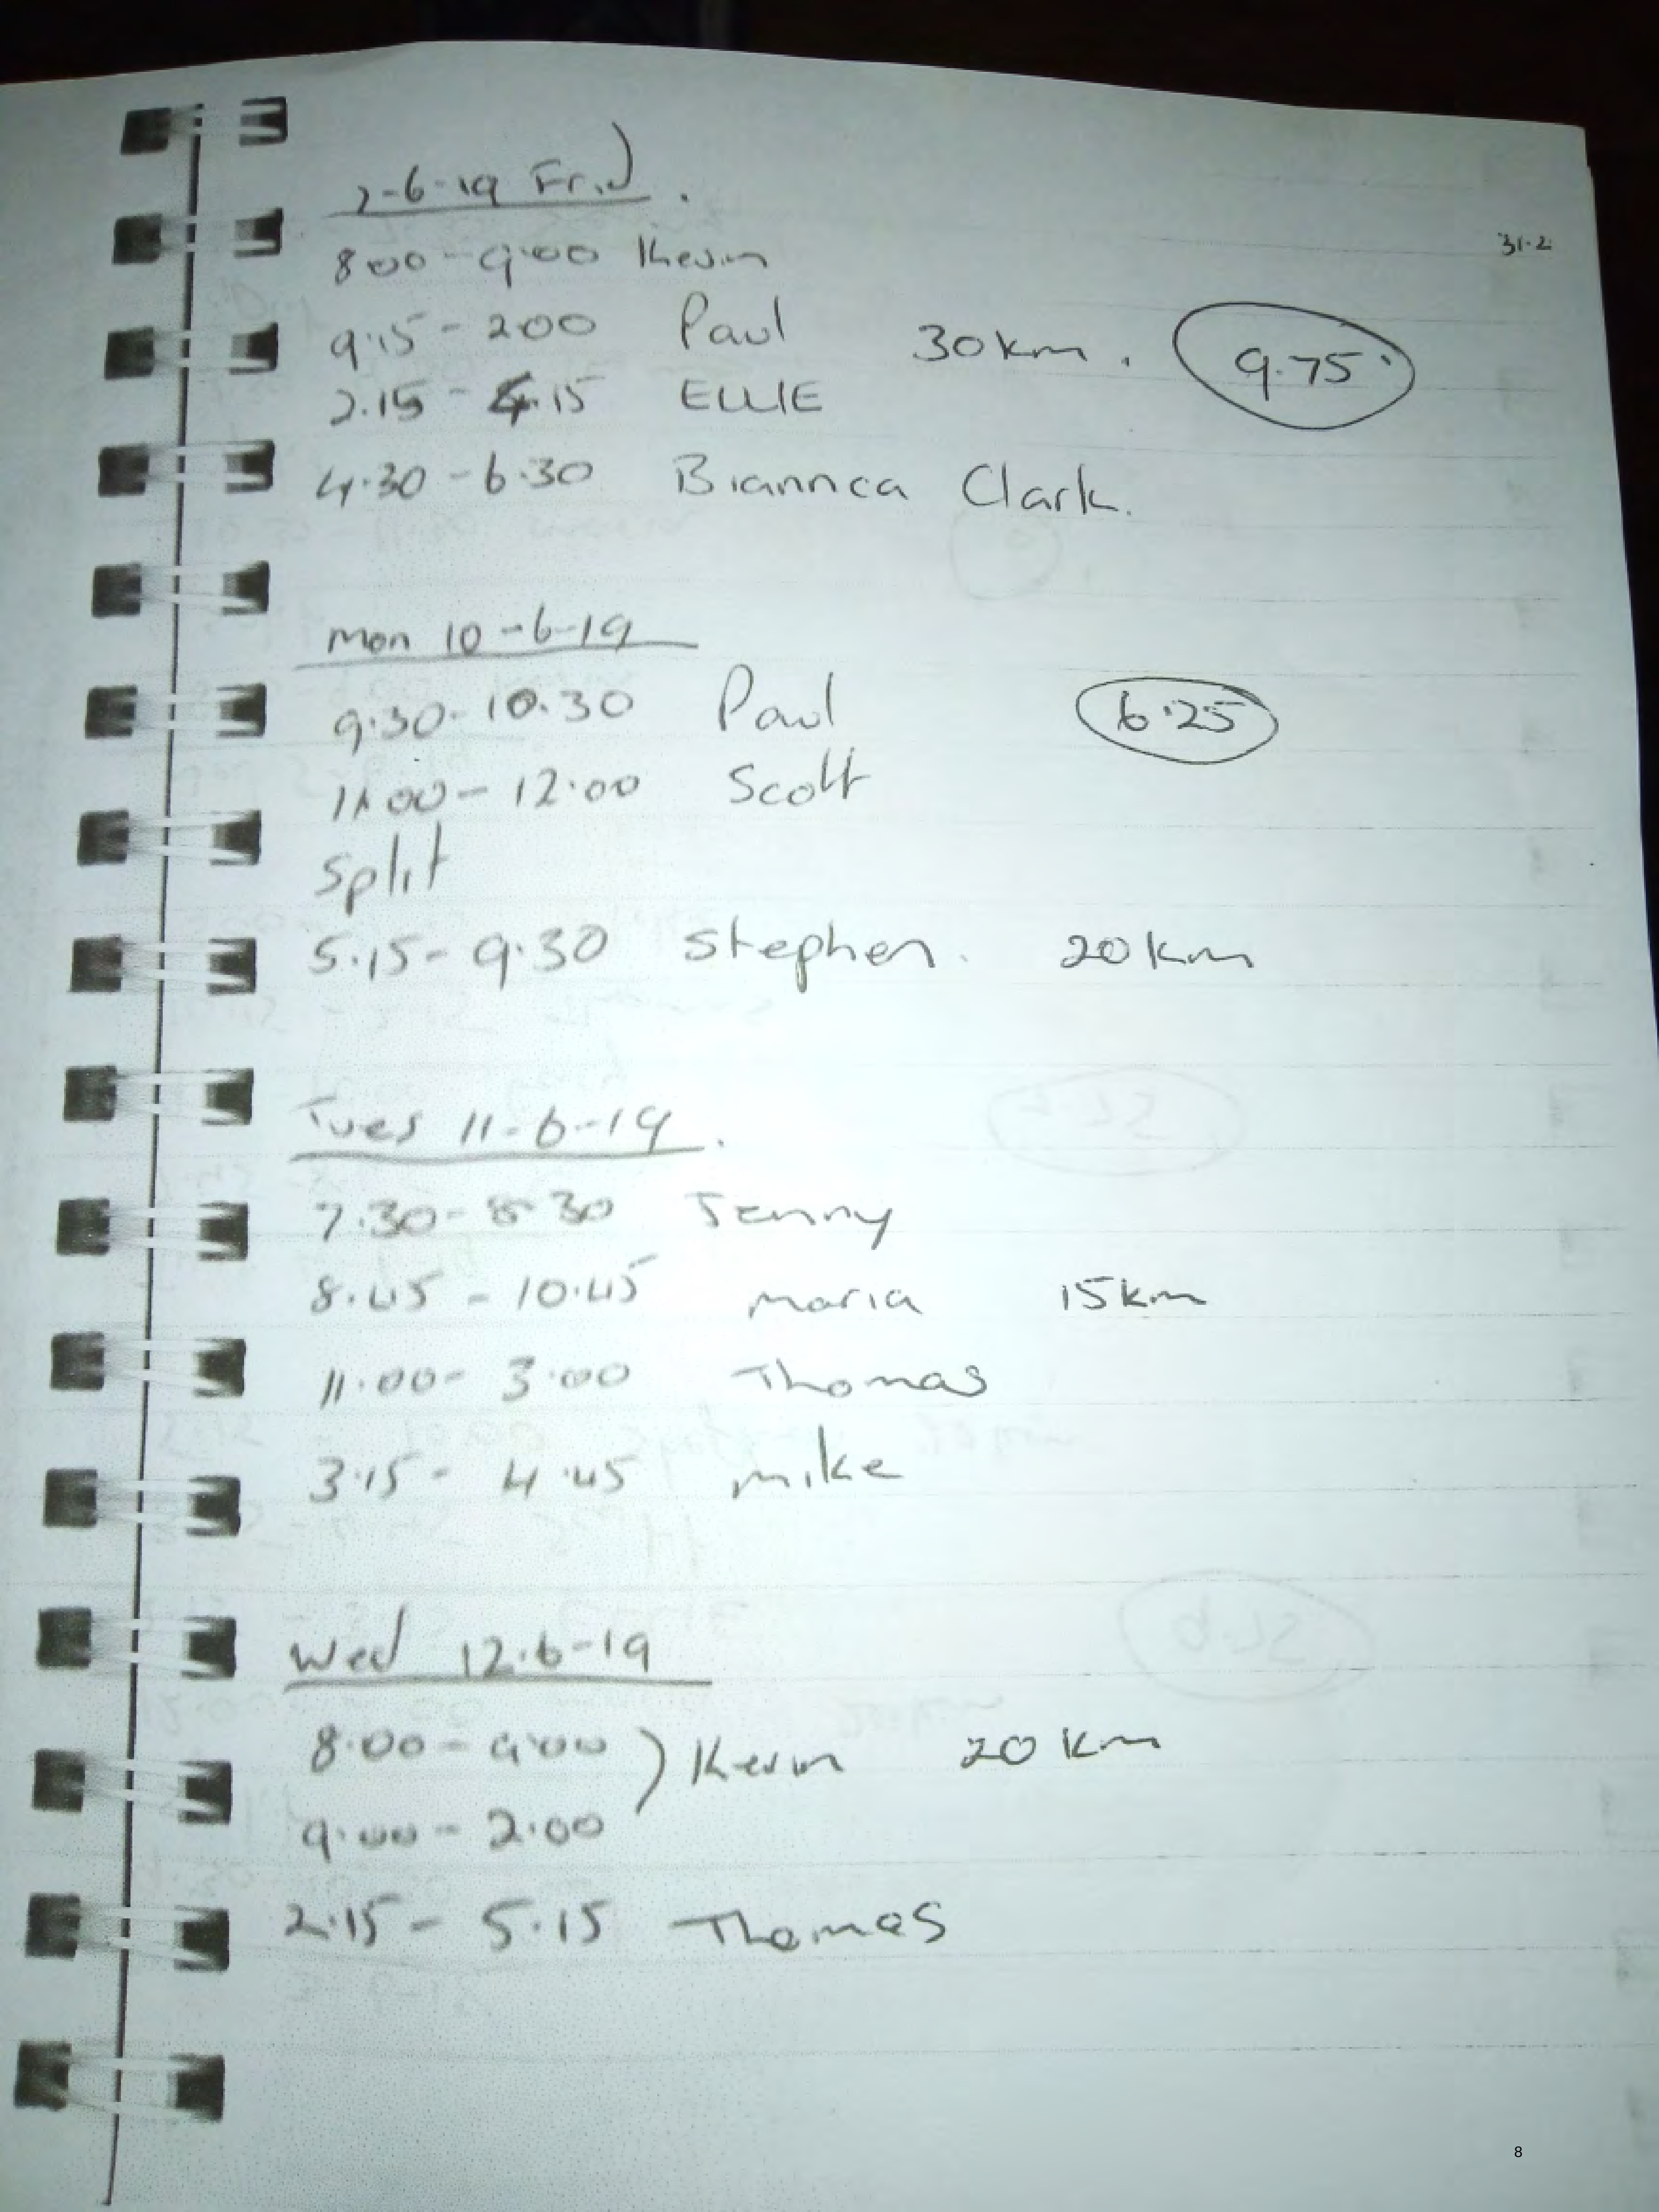 7-6-19 Frid.
31.2
8:00-9:00 Kevin
9.15-2.00 Paul 30km. 9.75
2.15-4.15 ELLIE
4.30-6.30 Biannca Clark.
Mon 10-6-19
9.30-10.30 Paul 6.25
11.00-12.00 Scott
Split
5.15-9.30 Stephen. 20km
Tues 11-6-19.
7.30-8.30 Jenny
8.45-10.45 Maria 15km
11.00-3.00 Thomas
3.15-4.45 Mike
Wed 12.6-19
8.00-9.00 ) Kevin 20km
9.00-2.00
2.15-5.15 Thomas
8